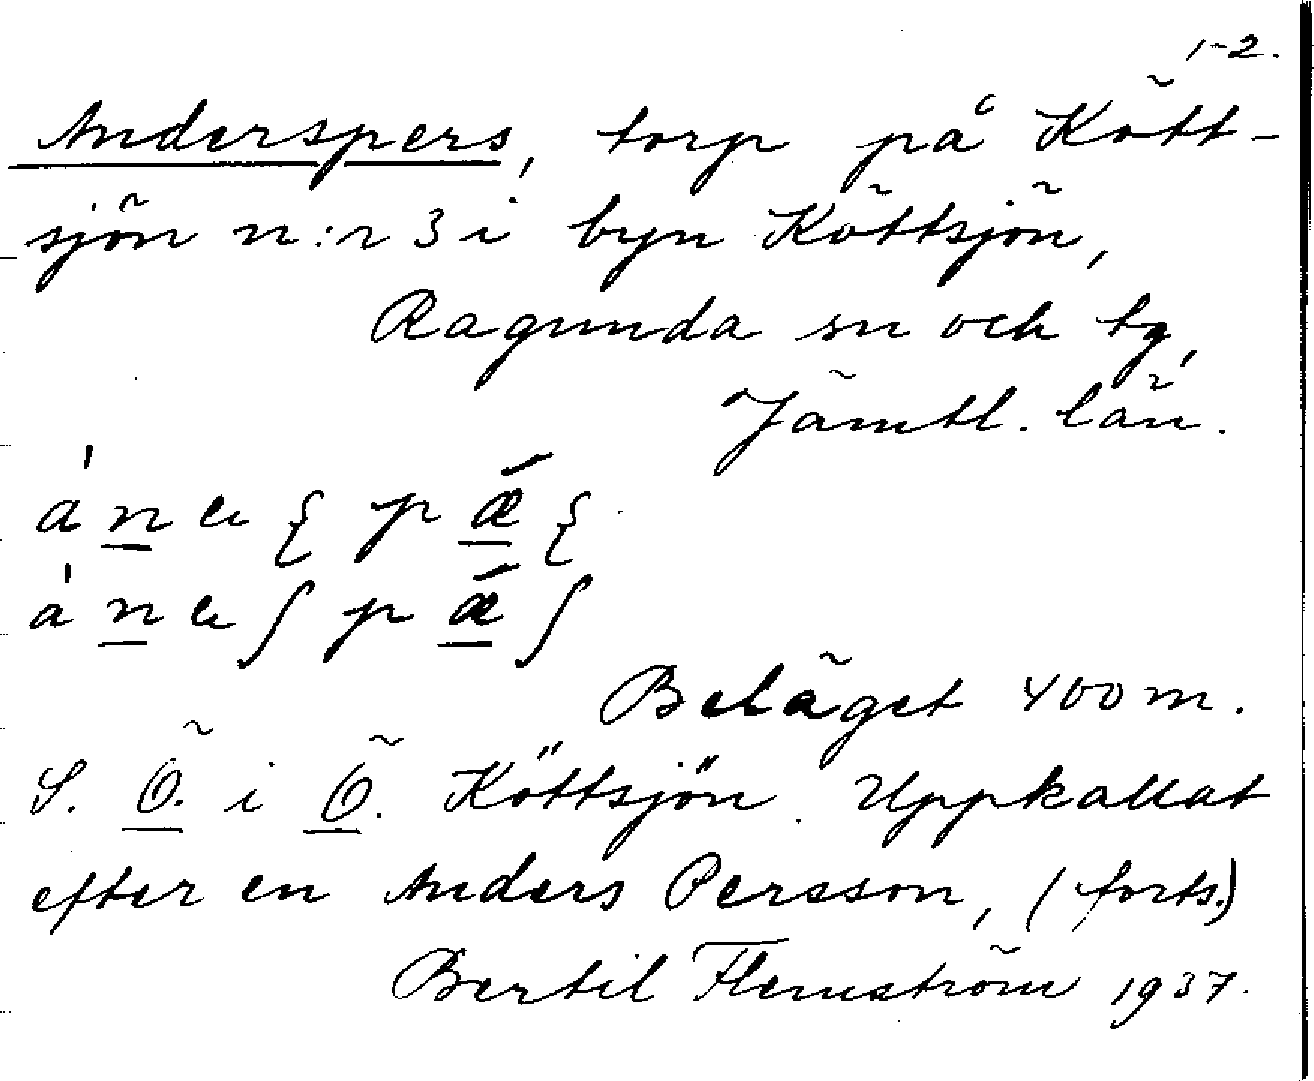 1-2.
Anderspers, torp på Kött-
sjön n:r 3 i byn Köttsjön,
Ragunda sn och tg,
Jämtl. län.
Beläget 400 m.
S. Ö. i Ö. Köttsjön. Uppkallat
efter en Anders Persson, (forts.)
Bertil Flemström 1937.